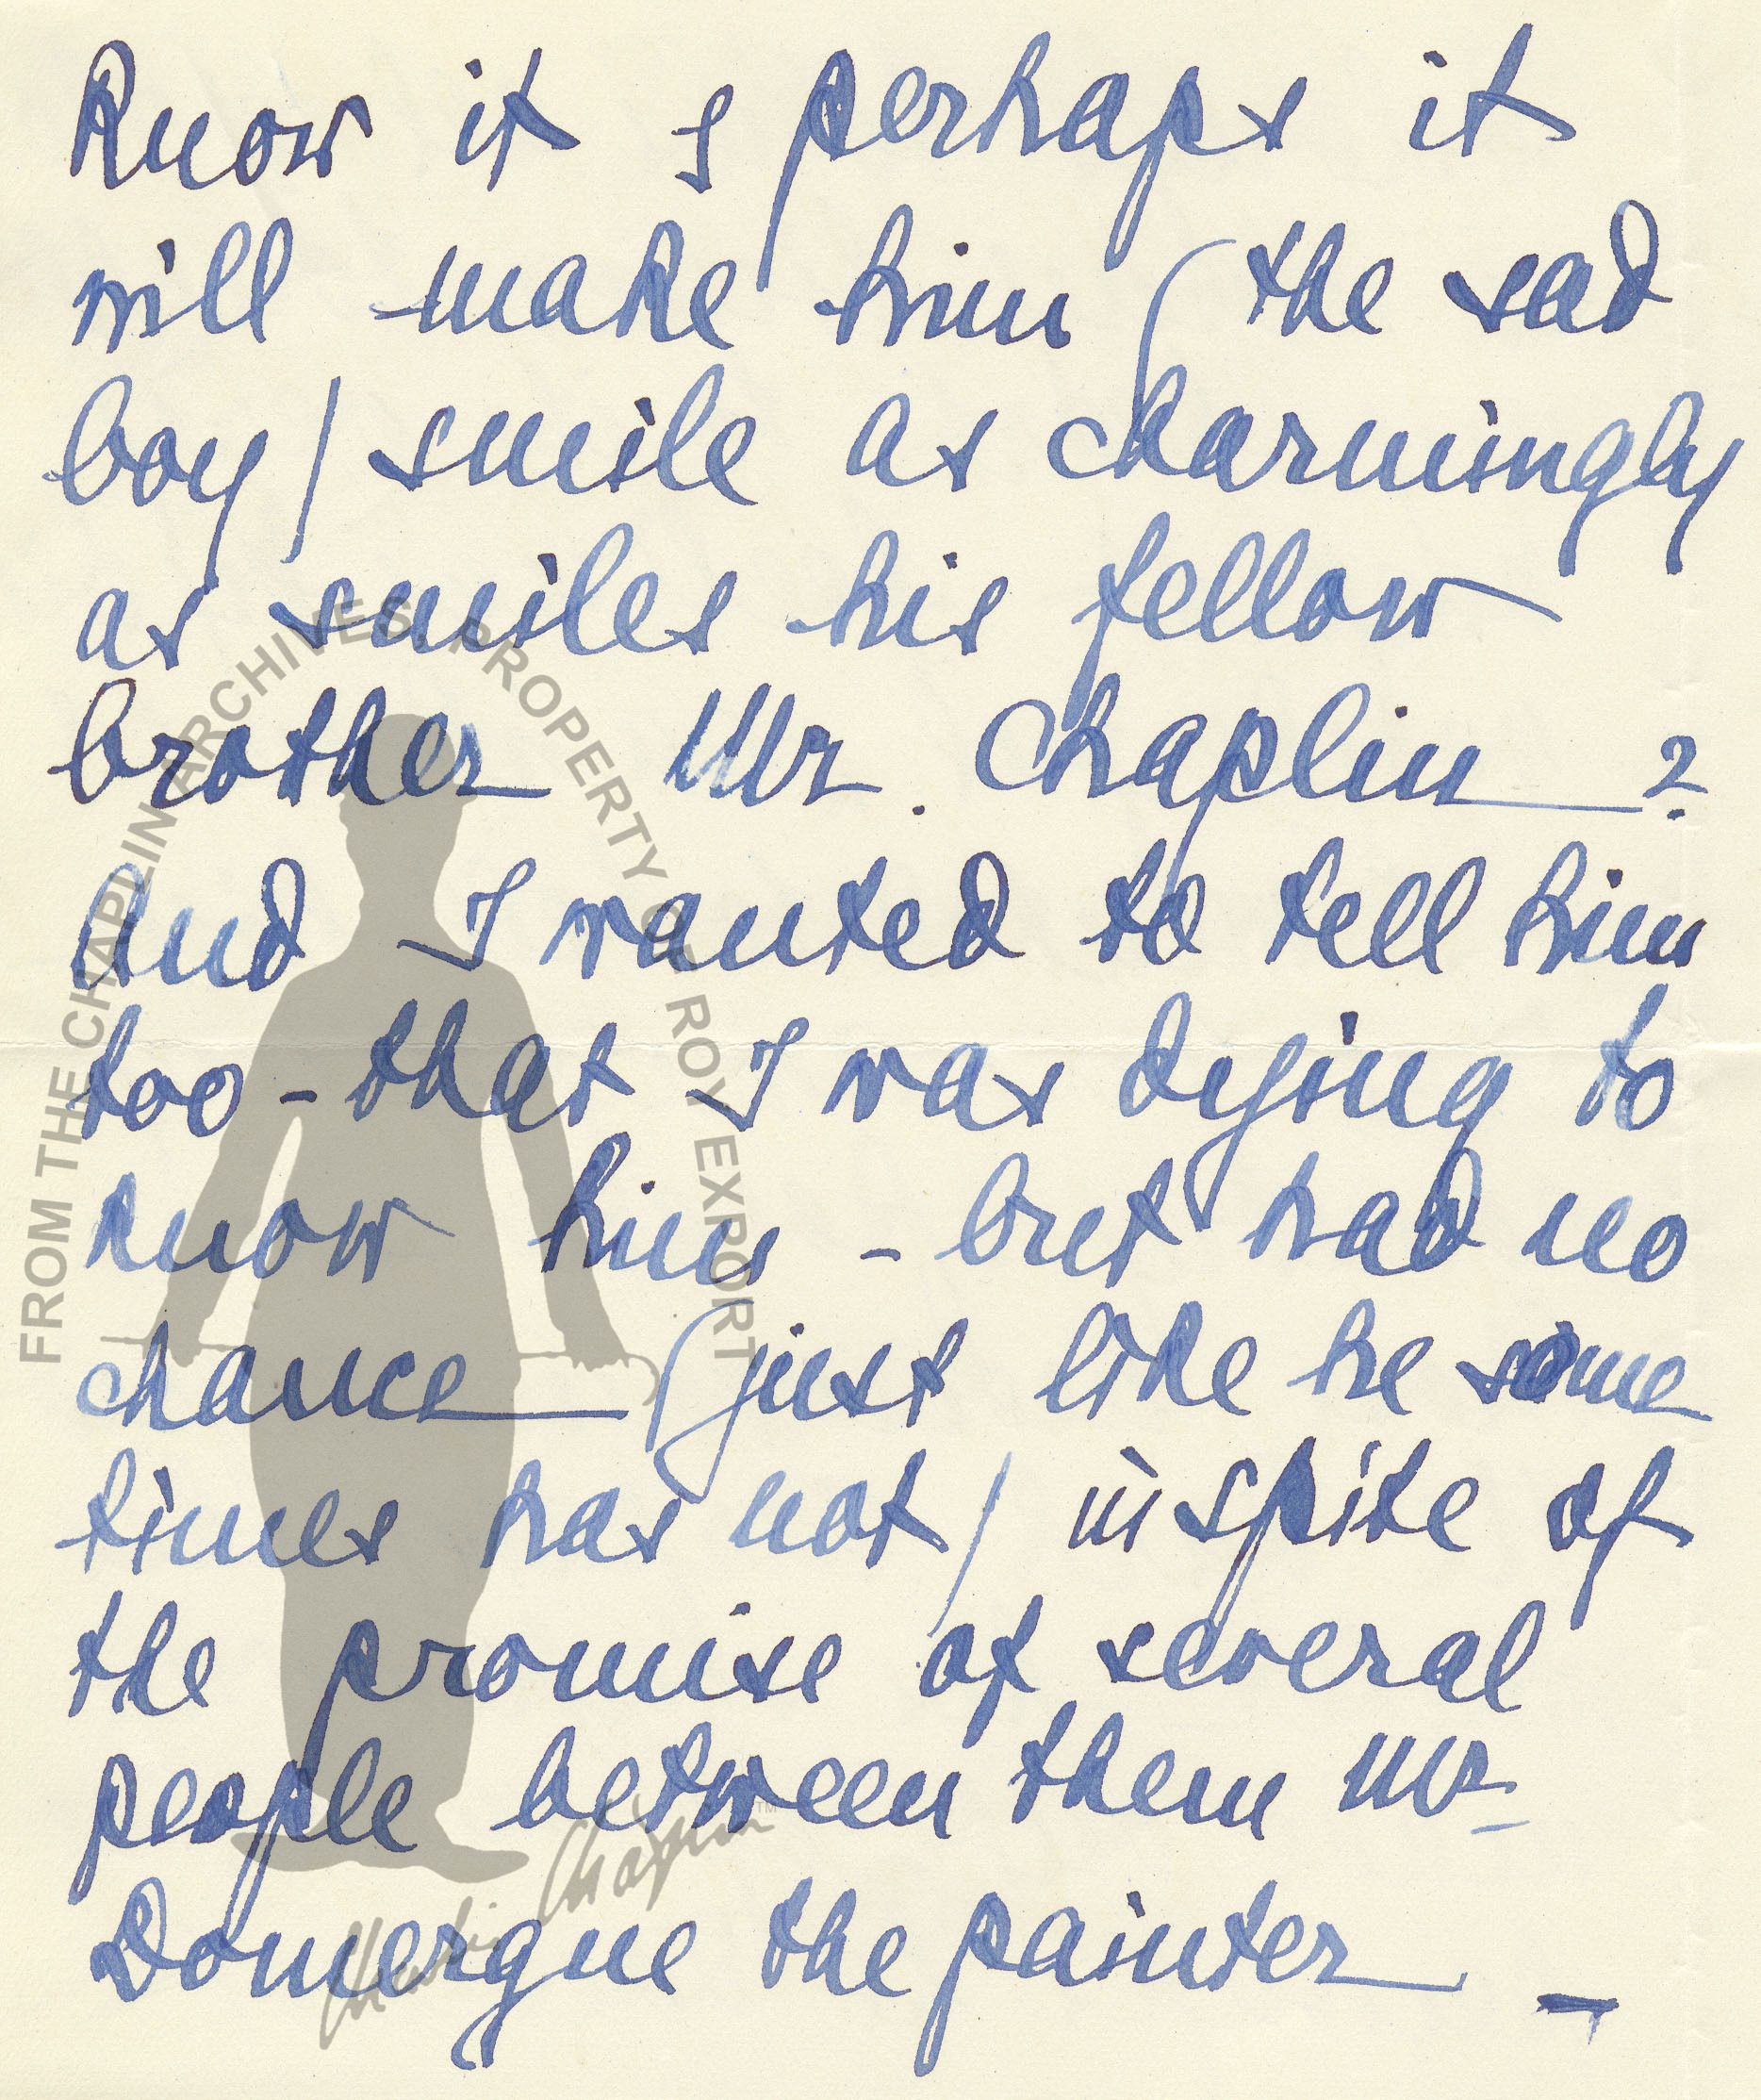 Know it & perhaps it
will make him (the sad
boy) smile as charmingly
as smiles his fellow
brother Mr. Chaplin ?
And I wanted to tell him
too - that I was dying to
know him - but had no
chance (just like he some
times has not) inspite of
the promise of several
people between them Mr
Domergue the painter -
FROM THE CHAPLIN ARCHIVES PROPERTY OF ROY EXPORT
Charlie Chaplin™